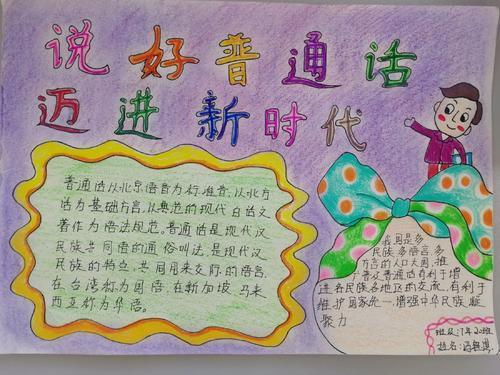 说好普通话
迈进新时代
普通话从北京语音为标准音,从北方
话为基础方言,从典范的现代白话文
著作为语法规范。普通话是现代汉
民族共同语的通俗叫法,是现代汉
民族的特点,共同用来交际的语言
在台湾称为国语,在新加坡、马来
西亚称为华语。
我国是多
民族、多语言、多
方言的人口大国,推
广普及普通话有利于增
进各民族各地区的交流,有利于
维护国家统一,增强中华民族凝
聚力
班级:
姓名: